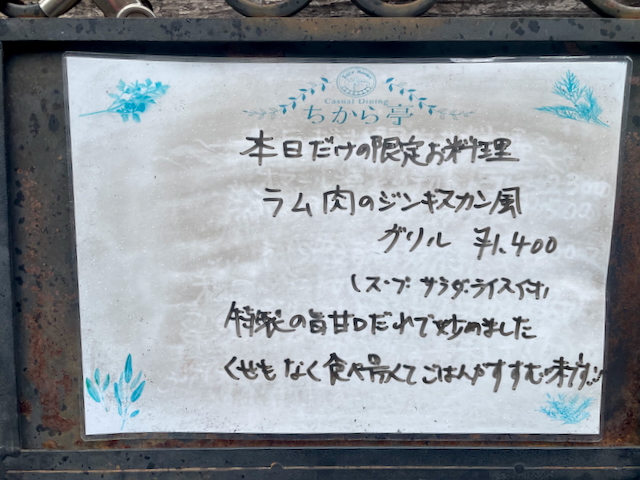 Casual Dining
ちから亭
本日だけの限定お料理
ラム肉のジンギスカン風
グリル ¥1,400
(スープ・サラダ・ライス付)
特製の旨甘口だれで炒めました
くせもなく食べ易くてごはんがすすむ味付